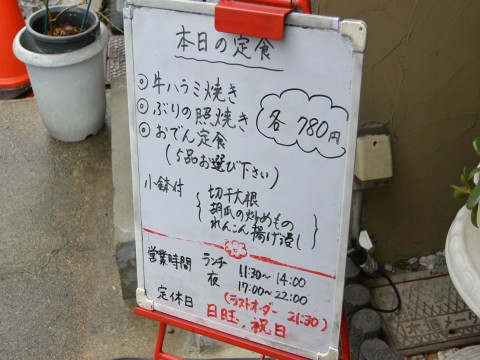 本日の定食
◎牛ハラミ焼き
◎ぶりの照焼き
◎おでん定食
(5品お選び下さい)
各780円
小鉢付
切干大根
胡瓜の炒めもの
れんこん揚げ浸し
営業時間 ランチ 11:30〜14:00
夜 17:00〜22:00
(ラストオーダー 21:30)
定休日 日曜、祝日